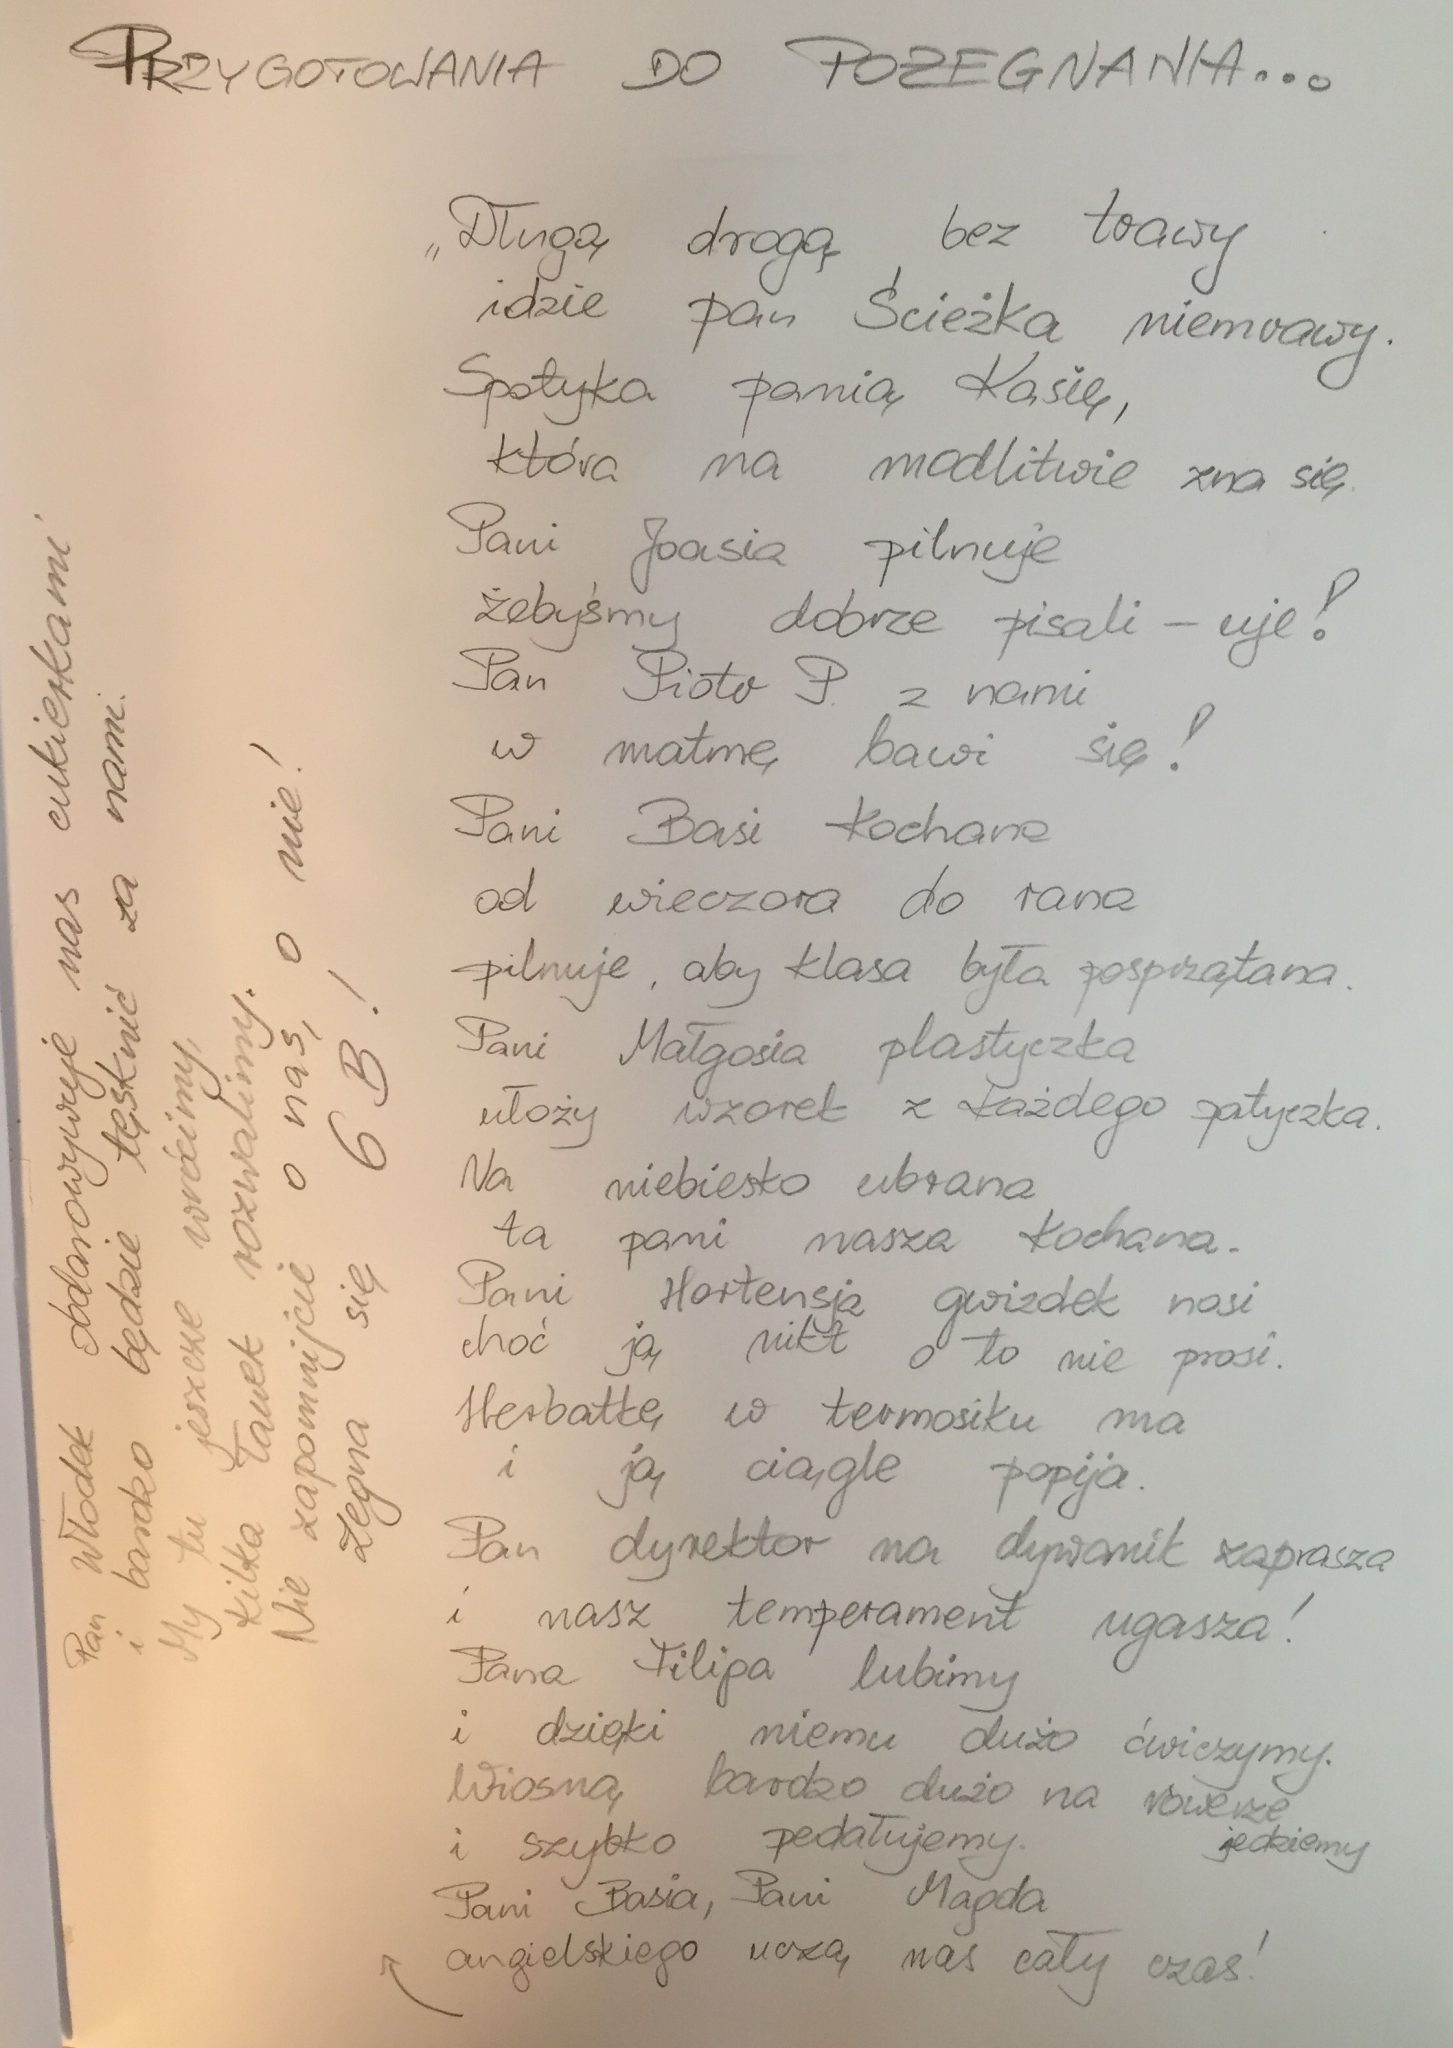 PRZYGOTOWANIA DO POŻEGNANIA...
„Długą drogą bez trawy
idzie pan Ścieżka niemrawy.
Spotyka panią Kasię,
która na modlitwie zna się.
Pani Joasia pilnuje
żebyśmy dobrze pisali – uje!
Pan Piotr P. z nami
w matmę bawi się!
Pani Basi kochana
od wieczora do rana
pilnuje, aby klasa była posprzątana.
Pani Małgosia plastyczka
ułoży wzorek z każdego patyczka.
Na niebiesko ubrana
ta pani nasza kochana.
Pani Hortensja gwizdek nosi
choć ją nikt o to nie prosi.
Herbatkę w termosiku ma
i ją ciągle popija.
Pan dyrektor na dywanik zaprasza
i nasz temperament ugasza!
Pana Filipa lubimy
i dzięki niemu dużo ćwiczymy.
Wiosną bardzo dużo na rowerze
jedziemy
i szybko pedałujemy.
Pani Basia, Pani Magda
angielskiego uczą nas cały czas!
Pan Włodek obdarowywuje nas cukierkami
i bardzo będzie tęsknić za nami.
My tu jeszcze wrócimy,
kilka ławek rozwalimy.
Nie zapomnijcie o nas, o nie!
Żegna się 6B!